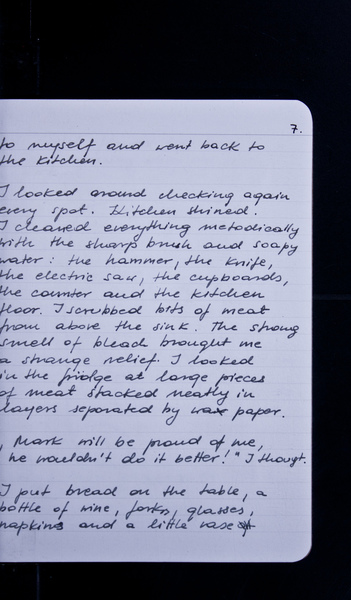 7.
to myself and went back to
the kitchen.
I looked around checking again
every spot. Kitchen shined.
I cleaned everything metodically
with the sharp brush and soapy
water: the hammer, the knife,
the electric saw, the cupboards,
the counter and the kitchen
floor. I scrubbed bits of meat
from above the sink. The strong
smell of bleach brought me
a strange relief. I looked
in the fridge at large pieces
of meat stacked neatly in
layers separated by wax paper.
„Mark will be proud of me,
he wouldn't do it better!" I thougt.
I put bread on the table, a
bottle of wine, forks, glasses,
napkins and a little vase